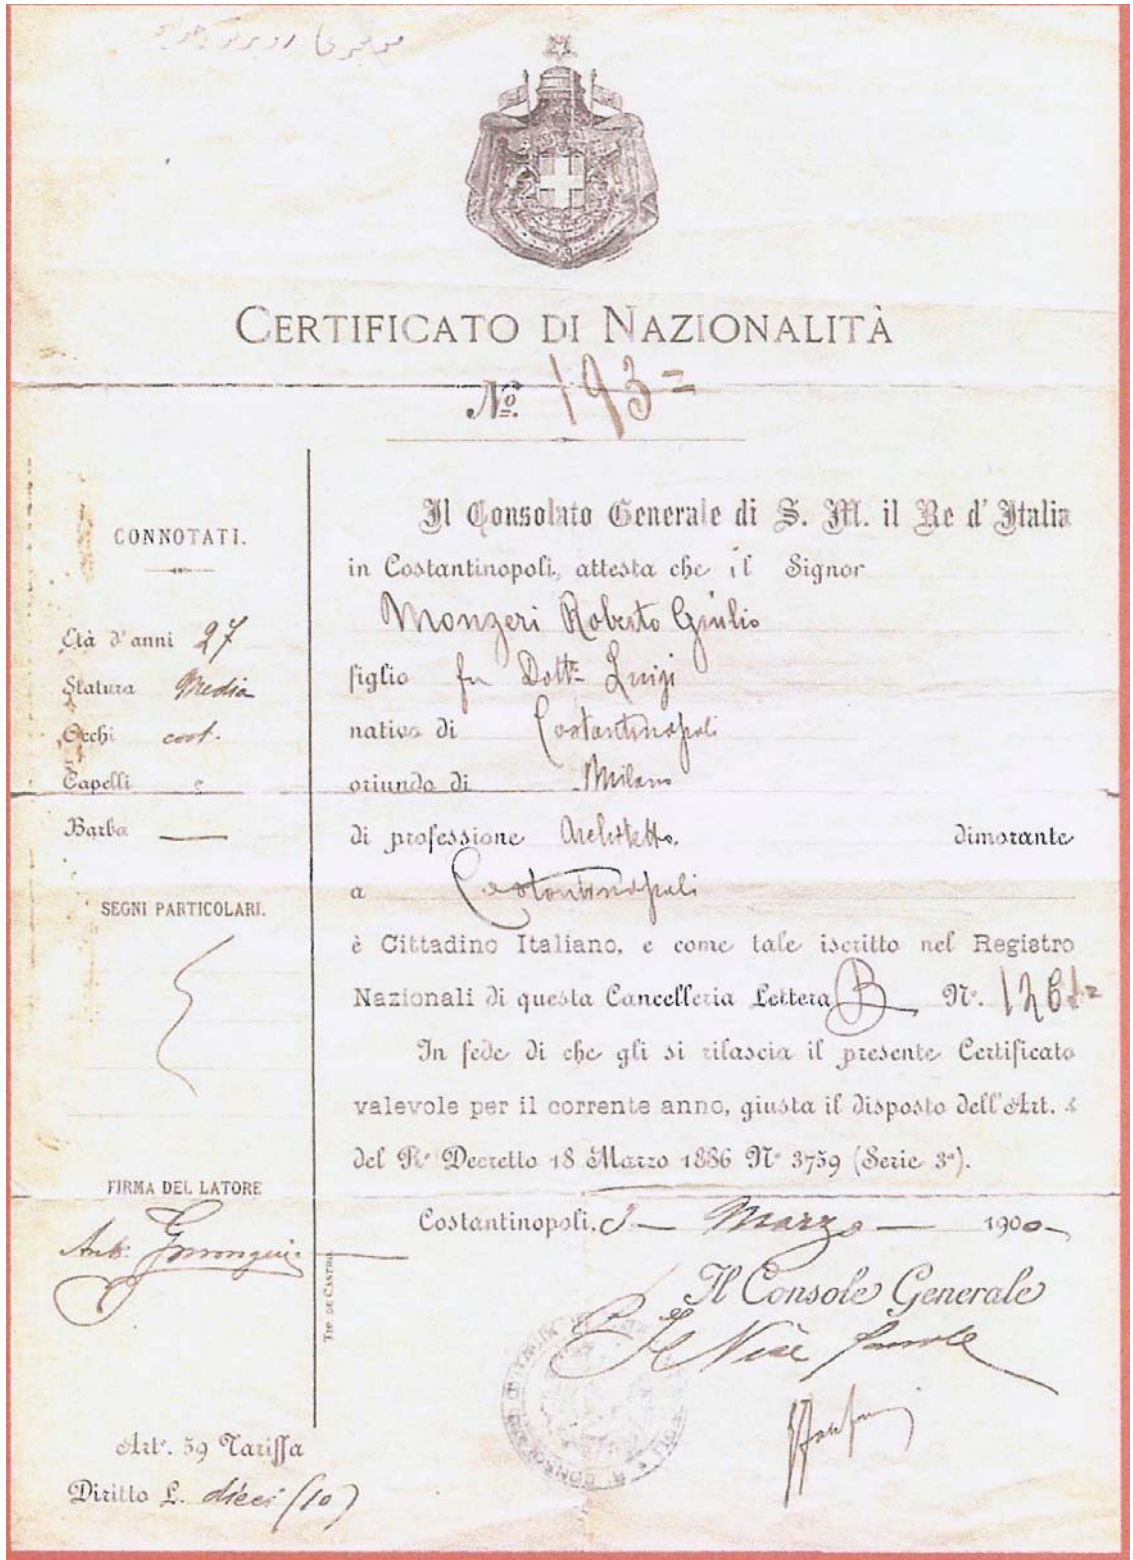 CERTIFICATO DI NAZIONALITÀ
Nº. 193=
CONNOTATI.
Età d'anni 27
Statura Media
Occhi cast.
Capelli
Barba —
SEGNI PARTICOLARI.
FIRMA DEL LATORE
Il Consolato Generale di S. M. il Re d'Italia
in Costantinopoli, attesta che il Signor
Mongeri Roberto Giulio
figlio fu Dottr. Luigi
nativo di Costantinopoli
oriundo di Milano
di professione Architetto. dimorante
a Costantinopoli
è Cittadino Italiano, e come tale iscritto nel Registro
Nazionali di questa Cancelleria Lettera B Nº.
In fede di che gli si rilascia il presente Certificato
valevole per il corrente anno, giusta il disposto dell'Art.
del Rº Decretto 18 Marzo 1886 Nº 3759 (Serie 3ª).
Costantinopoli, Marzo — 1900
Il Console Generale
Il Vice Console
TIP. DE CASTRO
Artº. 59 Tariffa
Diritto L. dieci (10)